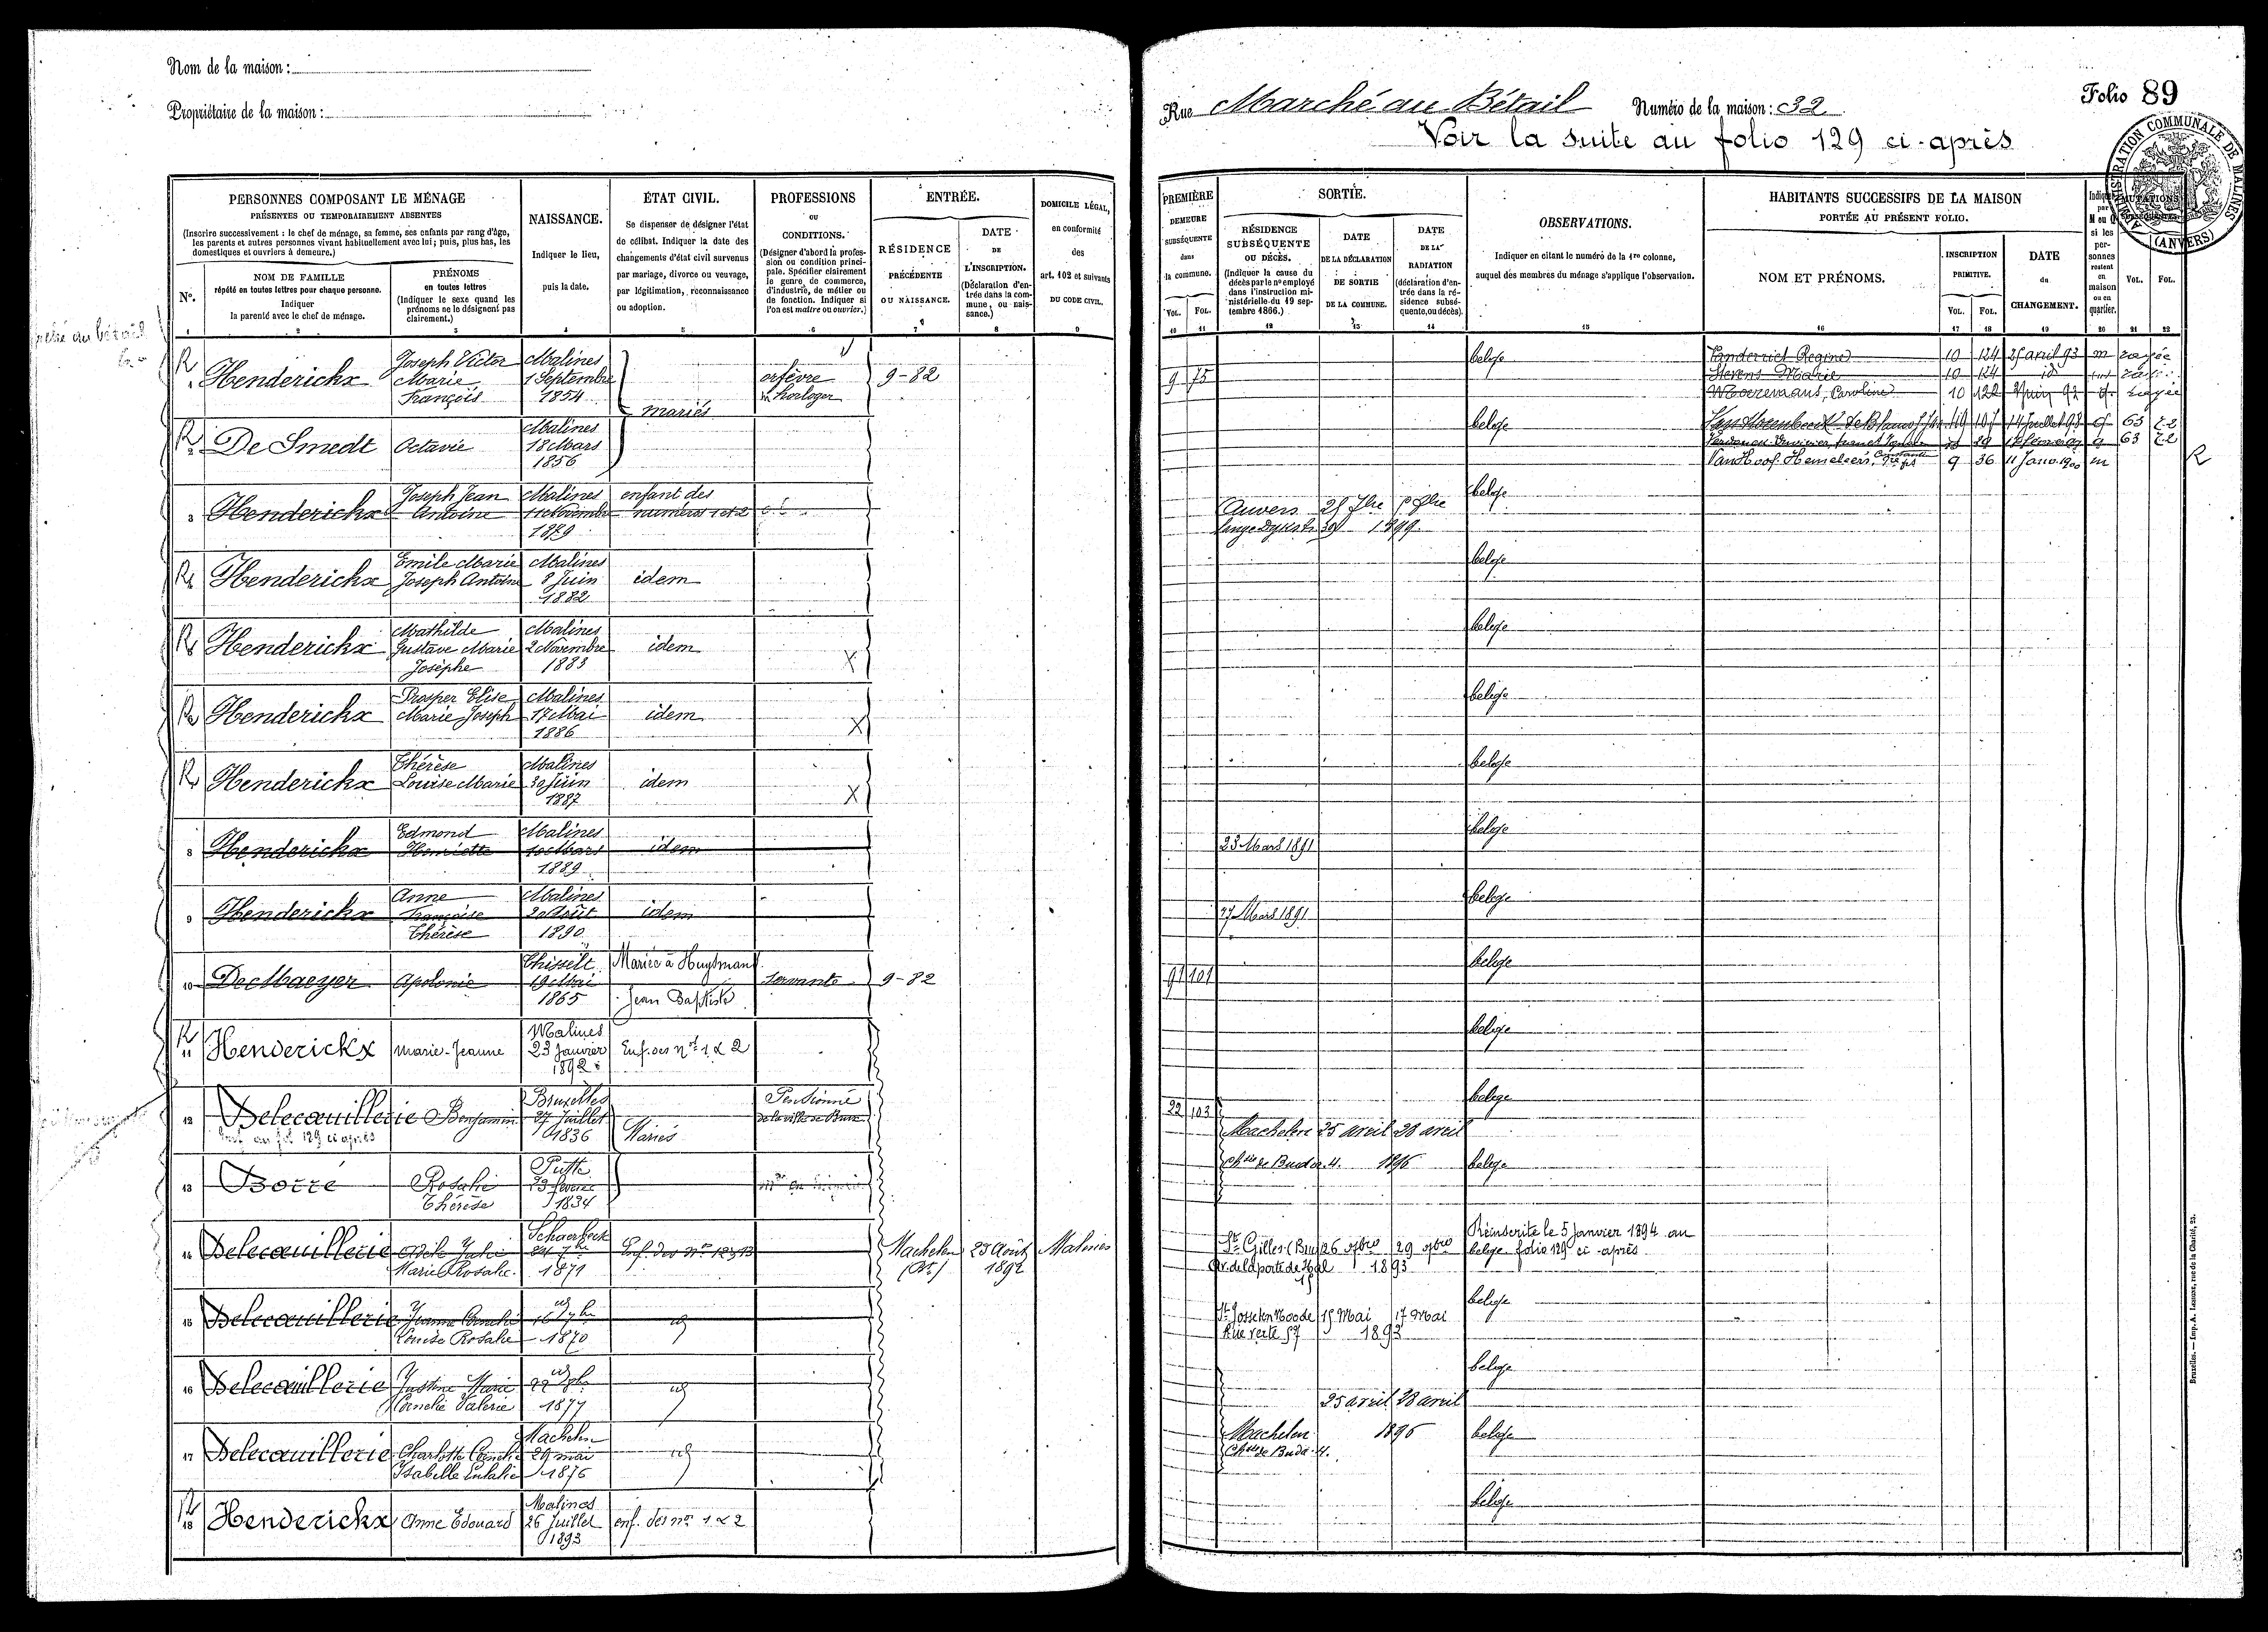 Nom de la maison :
Propriétaire de la maison :
PERSONNES COMPOSANT LE MÉNAGE
PRÉSENTES OU TEMPORAIREMENT ABSENTES
(Inscrire successivement : le chef de ménage, sa femme, ses enfants par rang d'âge,
les parents et autres personnes vivant habituellement avec lui; puis, plus bas, les
domestiques et ouvriers à demeure.)
No.
NOM DE FAMILLE
répété en toutes lettres pour chaque personne.
Indiquer
la parenté avec le chef de ménage.
PRÉNOMS
en toutes lettres
(Indiquer le sexe quand les
prénoms ne le désignent pas
clairement.)
NAISSANCE.
Indiquer le lieu,
puis la date.
ÉTAT CIVIL.
Se dispenser de désigner l'état
de célibat. Indiquer la date des
changements d'état civil survenus
par mariage, divorce ou veuvage,
par légitimation, reconnaissance
ou adoption.
PROFESSIONS
OU
CONDITIONS.
(Désigner d'abord la profes-
sion ou condition princi-
pale. Spécifier clairement
le genre de commerce,
d'industrie, de métier ou
de fonction. Indiquer si
l'on est maître ou ouvrier.)
ENTRÉE.
RÉSIDENCE
PRÉCÉDENTE
OU NAISSANCE.
DATE
DE
L'INSCRIPTION.
(Déclaration d'en-
trée dans la com-
mune, ou nais-
sance.)
DOMICILE LÉGAL,
en conformité
des
art. 102 et suivants
DU CODE CIVIL.
1 2 3 4 5 6 7 8 9
R 1 Henderickx Joseph Victor Marie François Malines 1 Septembre 1854 mariés orfèvre horloger 9-82
R 2 De Smedt Octavie Malines 18 Mars 1856
3 Henderickx Joseph Jean Antoine Malines 11 Novembre 1879 enfant des numéros 1 et 2
R 4 Henderickx Emile Marie Joseph Antoine Malines 8 Juin 1882 idem
R 5 Henderickx Mathilde Gustave Marie Josèphe Malines 2 Novembre 1883 idem X
R 6 Henderickx Prosper Elise Marie Joseph Malines 17 Mai 1886 idem X
R 7 Henderickx Thérèse Louise Marie Malines 30 Juin 1887 idem X
8 Henderickx Edmond Henriette Malines 10 Mars 1889 idem
9 Henderickx Anne Françoise Thérèse Malines 20 Août 1890 idem
10 De Maeyer Apolonie Thisselt 19 Mai 1865 Mariée à Huysmans Jean Baptiste servante 9-82
R 11 Henderickx Marie-Jeanne Malines 23 Janvier 1892 Enf. des nos 1 & 2
12 Delecœuillerie Benjamin Bruxelles 27 Juillet 1836 Mariés Pensionné de la ville de Brux
au fol 129 ci après
13 Borré Rosalie Thérèse Putte 23 février 1834
14 Delecœuillerie Adèle Julie Marie Rosalie Schaerbeek 24 7bre 1871 Enf. des nos 12 & 13 Machelen (Bt.) 23 Août 1892 Malines
15 Delecœuillerie Jeanne Louise Rosalie id 16 7bre 1870 id
16 Delecœuillerie Justine Marie Cornelie Valerie id 1877 id
17 Delecœuillerie Charlotte Cornelie Isabelle Eulalie Machelen 29 mai 1876 id
R 18 Henderickx Anne Edouard Malines 26 Juillet 1893 enf. des nos 1 & 2
Folio 89
Rue Marché au Bétail Numéro de la maison : 32
Voir la suite au folio 129 ci-après
ADMINISTRATION COMMUNALE DE MALINES
(ANVERS)
PREMIÈRE
DEMEURE
SUBSÉQUENTE
dans
la commune.
VOL. FOL.
SORTIE.
RÉSIDENCE
SUBSÉQUENTE
OU DÉCÈS.
(Indiquer la cause du
décès par le no employé
dans l'instruction mi-
nistérielle du 19 sep-
tembre 1866.)
DATE
DE LA DÉCLARATION
DE SORTIE
DE LA COMMUNE.
DATE
DE LA
RADIATION
(déclaration d'en-
trée dans la ré-
sidence subsé-
quente, ou décès).
OBSERVATIONS.
Indiquer en citant le numéro de la 1re colonne,
auquel des membres du ménage s'applique l'observation.
HABITANTS SUCCESSIFS DE LA MAISON
PORTÉE AU PRÉSENT FOLIO.
NOM ET PRÉNOMS.
INSCRIPTION
PRIMITIVE.
VOL. FOL.
DATE
du
CHANGEMENT.
Indiquer
par
M ou Q
si les
per-
sonnes
restent
en
maison
ou en
quartier.
MUTATIONS
VOL. FOL.
10 11 12 13 14 15 16 17 18 19 20 21 22
belge Vanderriet Regine 10 124 25 avril 93 m rayée
9 75 Stevens Marie 10 124 id
Moeremans, Caroline 10 122 rayée
belge 14 Juillet 98 63 72
63 72
Van Hoof-Hemeleers 9 36 11 Janv. 1900 m
R
belge
Anvers 1899
belge
belge
belge
belge
belge
23 Mars 1891
belge
27 Mars 1891
belge
91 101
belge
belge
22 103
Machelen 25 avril 28 avril
Chée de Buda 4. 1896 belge
Réinscrite le 5 Janvier 1894 au
St Gilles (Brux) 26 9bre 29 9bre belge folio 129 ci-après
Av. de la porte de Hal 15 1893
belge
St Josse ten Noode 15 Mai 17 Mai
Rue verte 57 1893
belge
25 avril 28 avril
Machelen 1896 belge
Chée de Buda 4.
belge
Bruxelles. — Imp. A. Lesigne, rue de la Charité, 23.